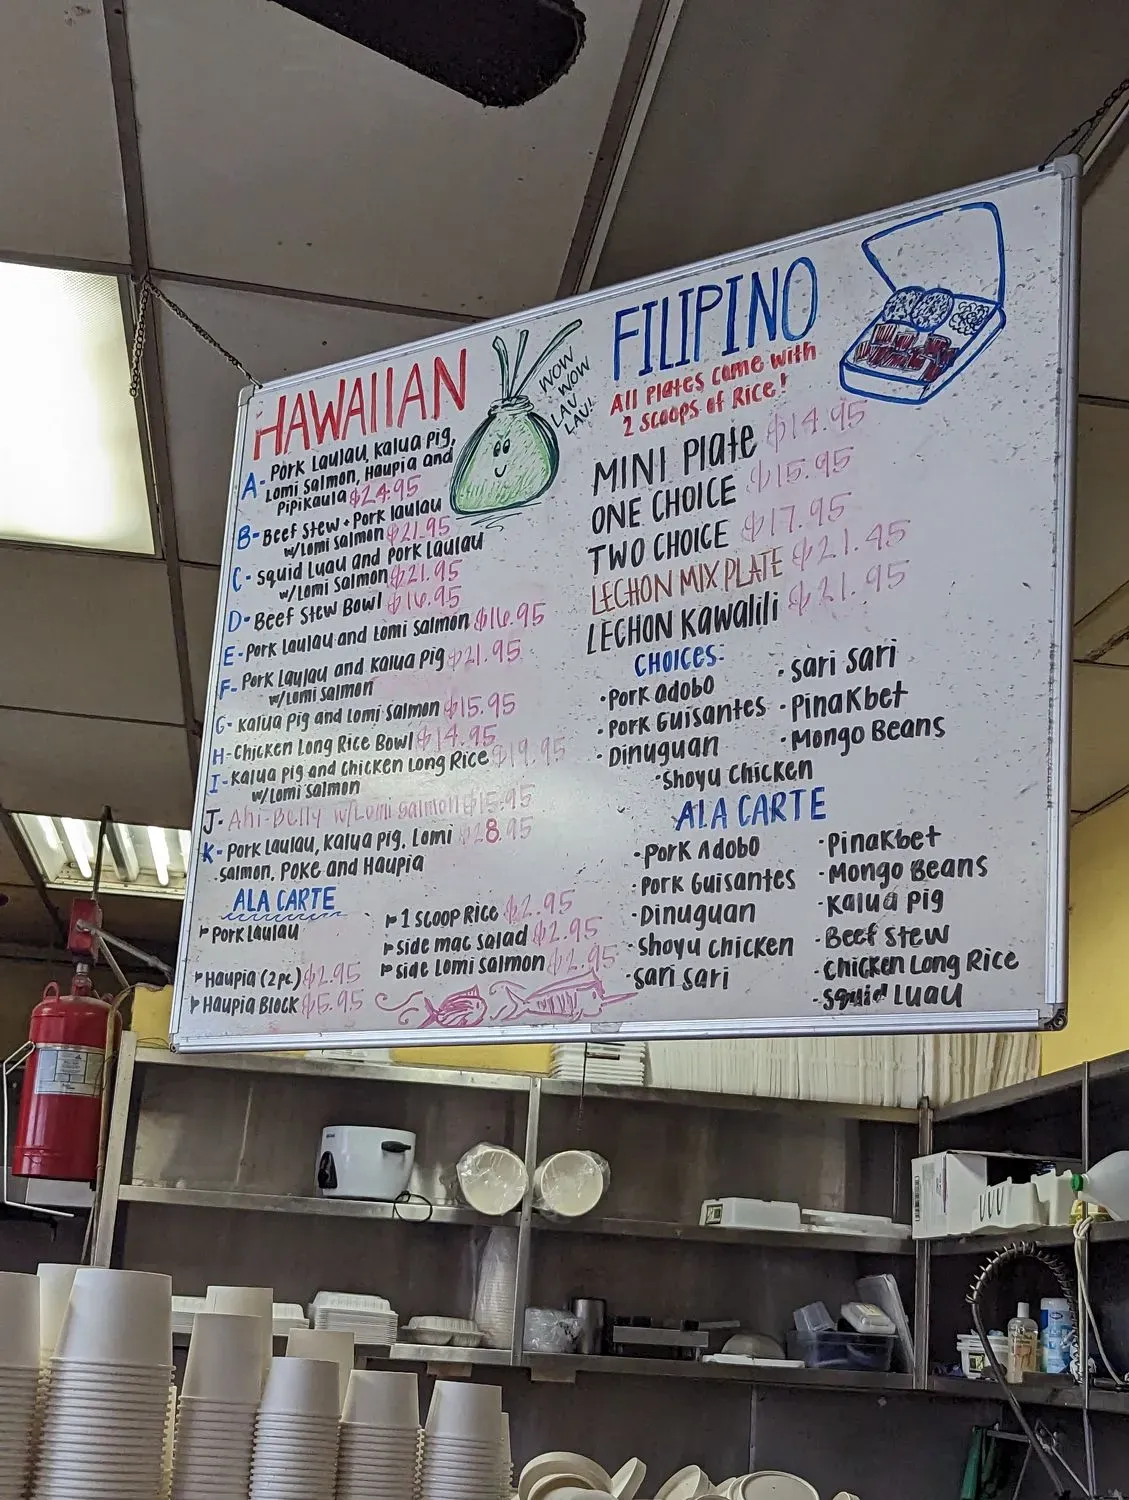 HAWAIIAN
A- Pork Laulau, Kalua Pig,
Lomi Salmon, Haupia and
Pipikaula $24.95
B- Beef Stew + Pork laulau
w/Lomi Salmon $21.95
C- Squid Luau and Pork Laulau
w/Lomi Salmon $21.95
D- Beef Stew Bowl $16.95
E- Pork Laulau and Lomi Salmon $16.95
F- Pork Laulau and Kalua Pig $21.95
w/Lomi Salmon
G- Kalua Pig and Lomi Salmon $15.95
H- Chicken Long Rice Bowl $14.95
I- Kalua Pig and Chicken Long Rice $19.95
w/Lomi Salmon
J- Ahi-Belly w/Lomi Salmon $15.95
K- Pork Laulau, Kalua Pig, Lomi $28.95
Salmon, Poke and Haupia
ALA CARTE
Pork Laulau
Haupia (2pc) $2.95
Haupia Block $5.95
1 Scoop Rice $2.95
Side Mac Salad $2.95
Side Lomi Salmon $2.95
WOW
WOW
LAU
LAU!
FILIPINO
All Plates come with
2 Scoops of Rice!
MINI Plate $14.95
ONE CHOICE $15.95
TWO CHOICE $17.95
LECHON MIX PLATE $21.95
LECHON Kawalili $21.95
CHOICES:
·Pork adobo
·Pork Guisantes
·Dinuguan
·Shoyu Chicken
·Sari Sari
·PinaKbet
·Mongo Beans
ALA CARTE
·Pork Adobo
·Pork Guisantes
·Dinuguan
·Shoyu Chicken
·Sari Sari
·PinaKbet
·Mongo Beans
·Kalua Pig
·Beef Stew
·Chicken Long Rice
·Squid Luau